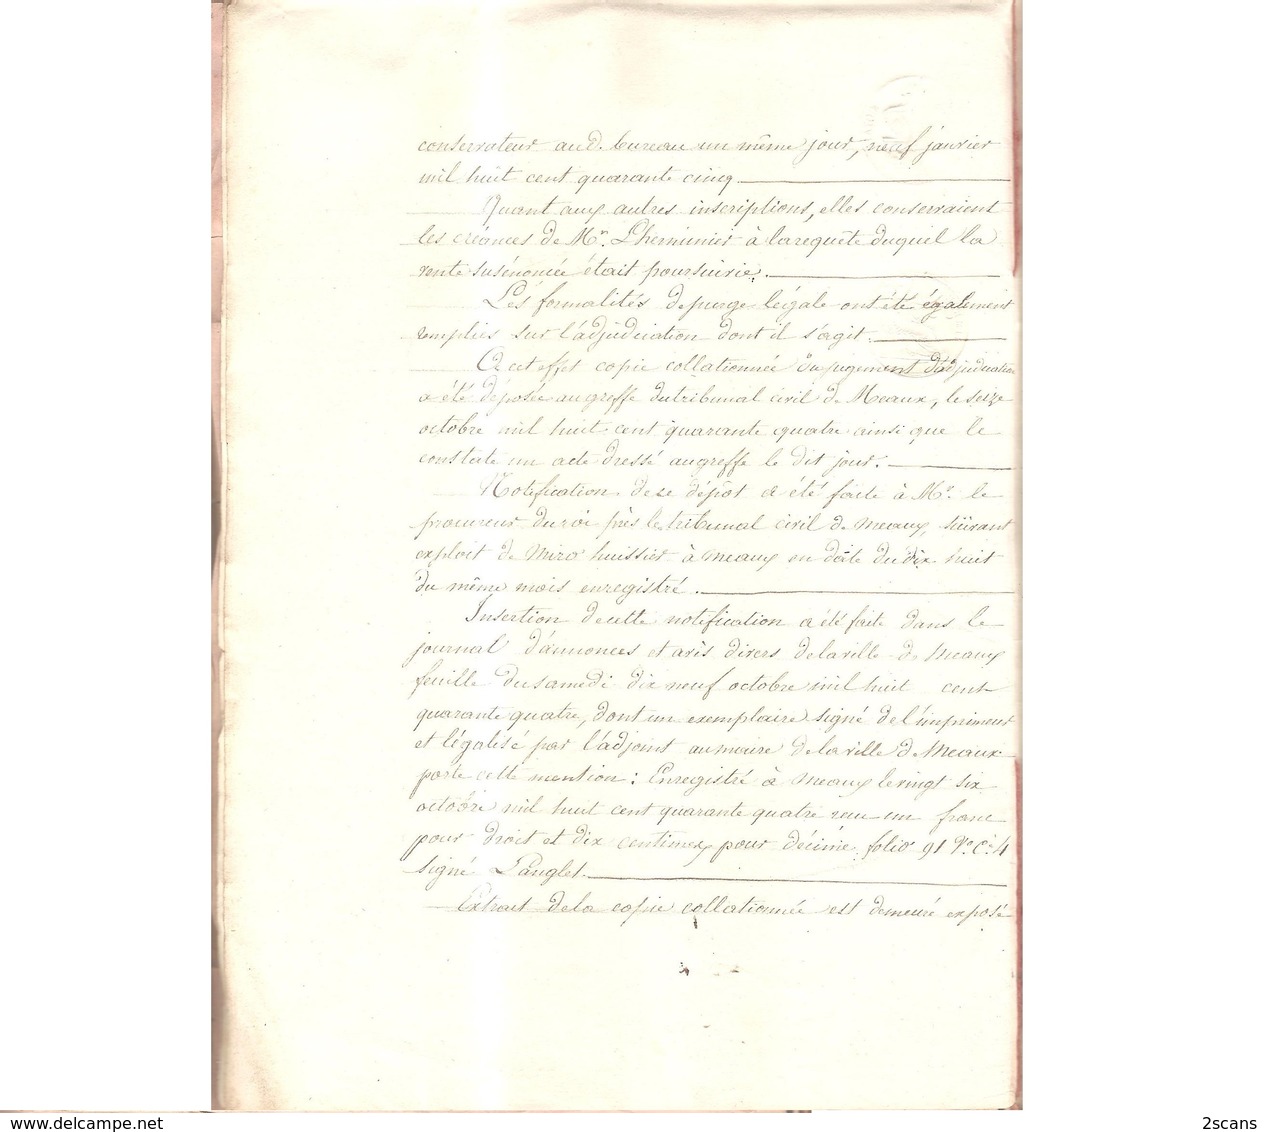 conservateur aud. bureau un même jour, neuf janvier
mil huit cent quarante cinq
Quant aux autres inscriptions, elles conservaient
les créances de Mr. Lherminier à la requête duquel la
vente susénoncée était poursuivie.
Les formalités de purge légale ont été également
remplies sur l'adjudication dont il s'agit.
A cet effet copie collationnée du jugement d'adjudication
a été déposée au greffe du tribunal civil de Meaux, le seize
octobre mil huit cent quarante quatre ainsi que le
constate un acte dressé au greffe le dit jour.
Notification de ce dépôt a été faite à Mr. le
procureur du roi près le tribunal civil de Meaux, suivant
exploit de Miro huissier à Meaux en date du dix huit
du même mois enregistré.
Insertion de cette notification a été faite dans le
journal d'annonces et avis divers de la ville de Meaux
feuille du samedi dix neuf octobre mil huit cent
quarante quatre, dont un exemplaire signé de l'imprimeur
et légalisé par l'adjoint au maire de la ville de Meaux
porte cette mention : Enregistré à Meaux le vingt six
octobre mil huit cent quarante quatre reçu un franc
pour droit et dix centimes pour décime folio 91 Vo. Ce. 4
signé Langlet.
Extrait de la copie collationnée est demeuré exposé
www.delcampe.net
2scans